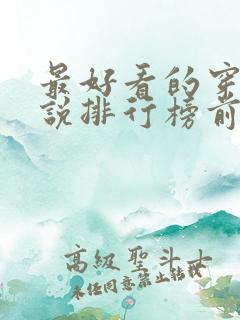 最好看的穿
说排行榜前
高級聖斗士
未经同意禁止转载